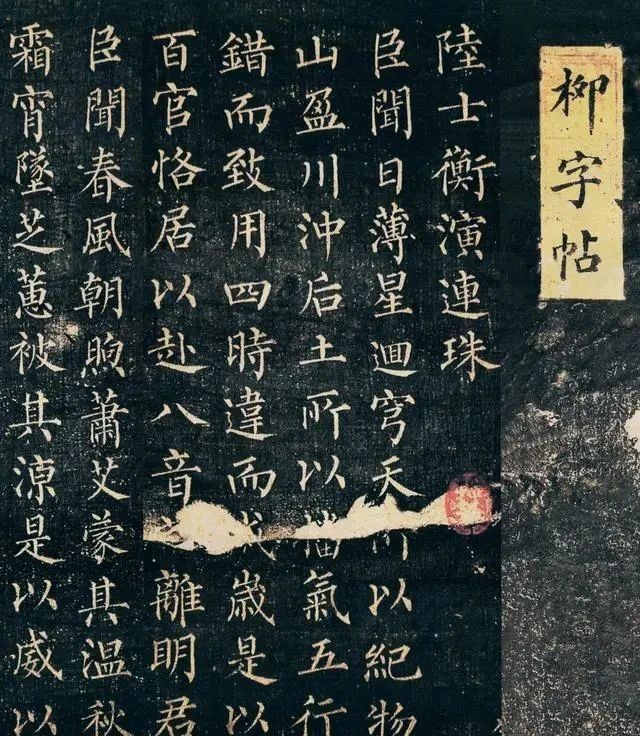 柳字帖
陸士衡演連珠
臣聞日薄星迴穹天所以紀物
山盈川沖后土所以播氣五行
錯而致用四時違而成歲是以
百官恪居以赴八音之離明君
臣聞春風朝煦蕭艾蒙其温秋
霜宵墜芝蕙被其涼是以威以